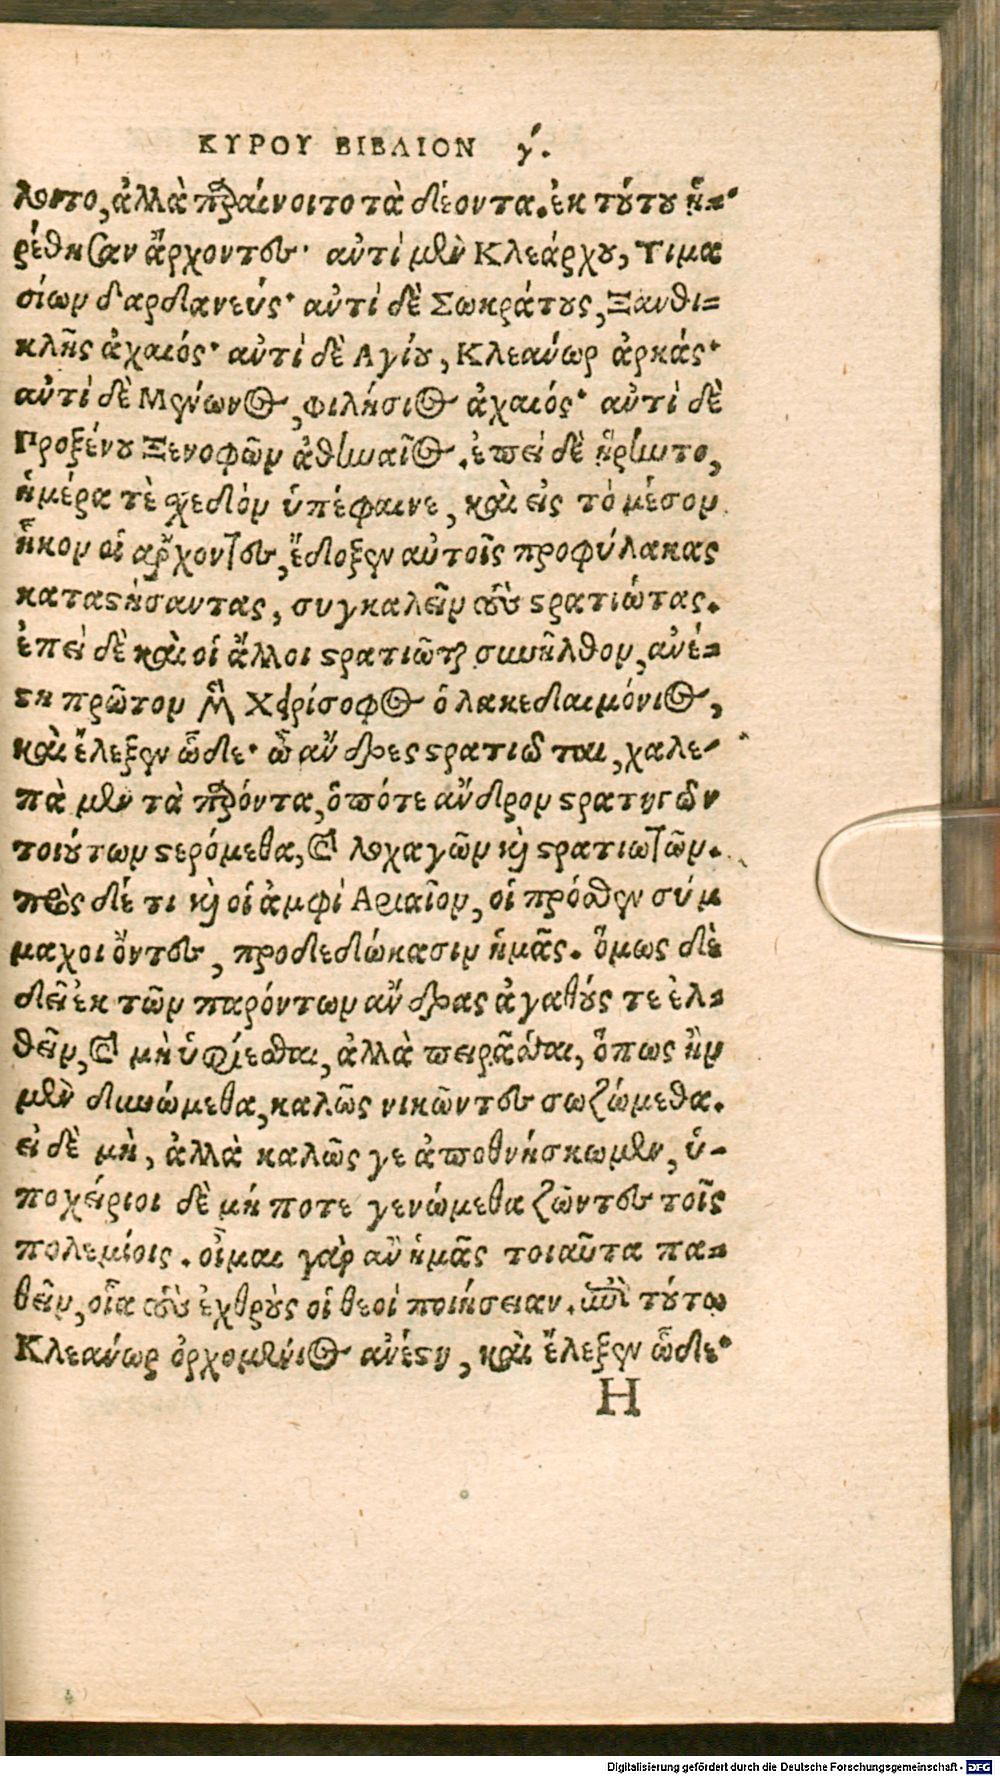 ΚΥΡΟΥ ΒΙΒΛΙΟΝ γ΄.
λοντο, ἀλλὰ περαίνοιτο τὰ δέοντα. ἐκ τούτου ᾑ-
ρέθησαν ἄρχοντες· ἀντὶ μὲν Κλεάρχου, Τιμα
σίων δαρδανεύς· ἀντὶ δὲ Σωκράτους, Ξανθι-
κλῆς ἀχαιός· ἀντὶ δὲ Αγίου, Κλεάνωρ ἀρκάς·
ἀντὶ δὲ Μένωνος, φιλήσιος ἀχαιός· ἀντὶ δὲ
Προξένου Ξενοφῶν ἀθηναῖος. ἐπεὶ δὲ ᾕρηντο,
ἡμέρα τὲ σχεδὸν ὑπέφαινε, καὶ εἰς τὸ μέσον
ἧκον οἱ ἄρχοντες, ἔδοξεν αὐτοῖς προφύλακας
καταστήσαντας, συγκαλεῖν τοὺς στρατιώτας.
ἐπεὶ δὲ καὶ οἱ ἄλλοι στρατιῶται συνῆλθον, ἀνέ-
στη πρῶτον μὲν Χειρίσοφος ὁ λακεδαιμόνιος,
καὶ ἔλεξεν ὧδε· ὦ ἄνδρες στρατιῶται, χαλε-
πὰ μὲν τὰ παρόντα, ὁπότε ἀνδρῶν στρατηγῶν
τοιούτων στερόμεθα, καὶ λοχαγῶν καὶ στρατιωτῶν.
πρὸς δέ τι καὶ οἱ ἀμφὶ Αριαῖον, οἱ πρόσθεν σύμ
μαχοι ὄντες, προδεδώκασιν ἡμᾶς. ὅμως δὲ
δεῖ ἐκ τῶν παρόντων ἄνδρας ἀγαθούς τε ἐλ-
θεῖν, καὶ μὴ ὑφίεσθαι, ἀλλὰ πειρᾶσθαι, ὅπως ἢν
μὲν δυνώμεθα, καλῶς νικῶντες σωζώμεθα.
εἰ δὲ μὴ, ἀλλὰ καλῶς γε ἀποθνήσκωμεν, ὑ-
ποχείριοι δὲ μή ποτε γενώμεθα ζῶντες τοῖς
πολεμίοις. οἶμαι γὰρ ἂν ἡμᾶς τοιαῦτα πα-
θεῖν, οἷα τοὺς ἐχθροὺς οἱ θεοὶ ποιήσειαν. ἐπὶ τούτῳ
Κλεάνωρ ὀρχομένιος ἀνέστη, καὶ ἔλεξεν ὧδε·
H
Digitalisierung gefördert durch die Deutsche Forschungsgemeinschaft - DFG